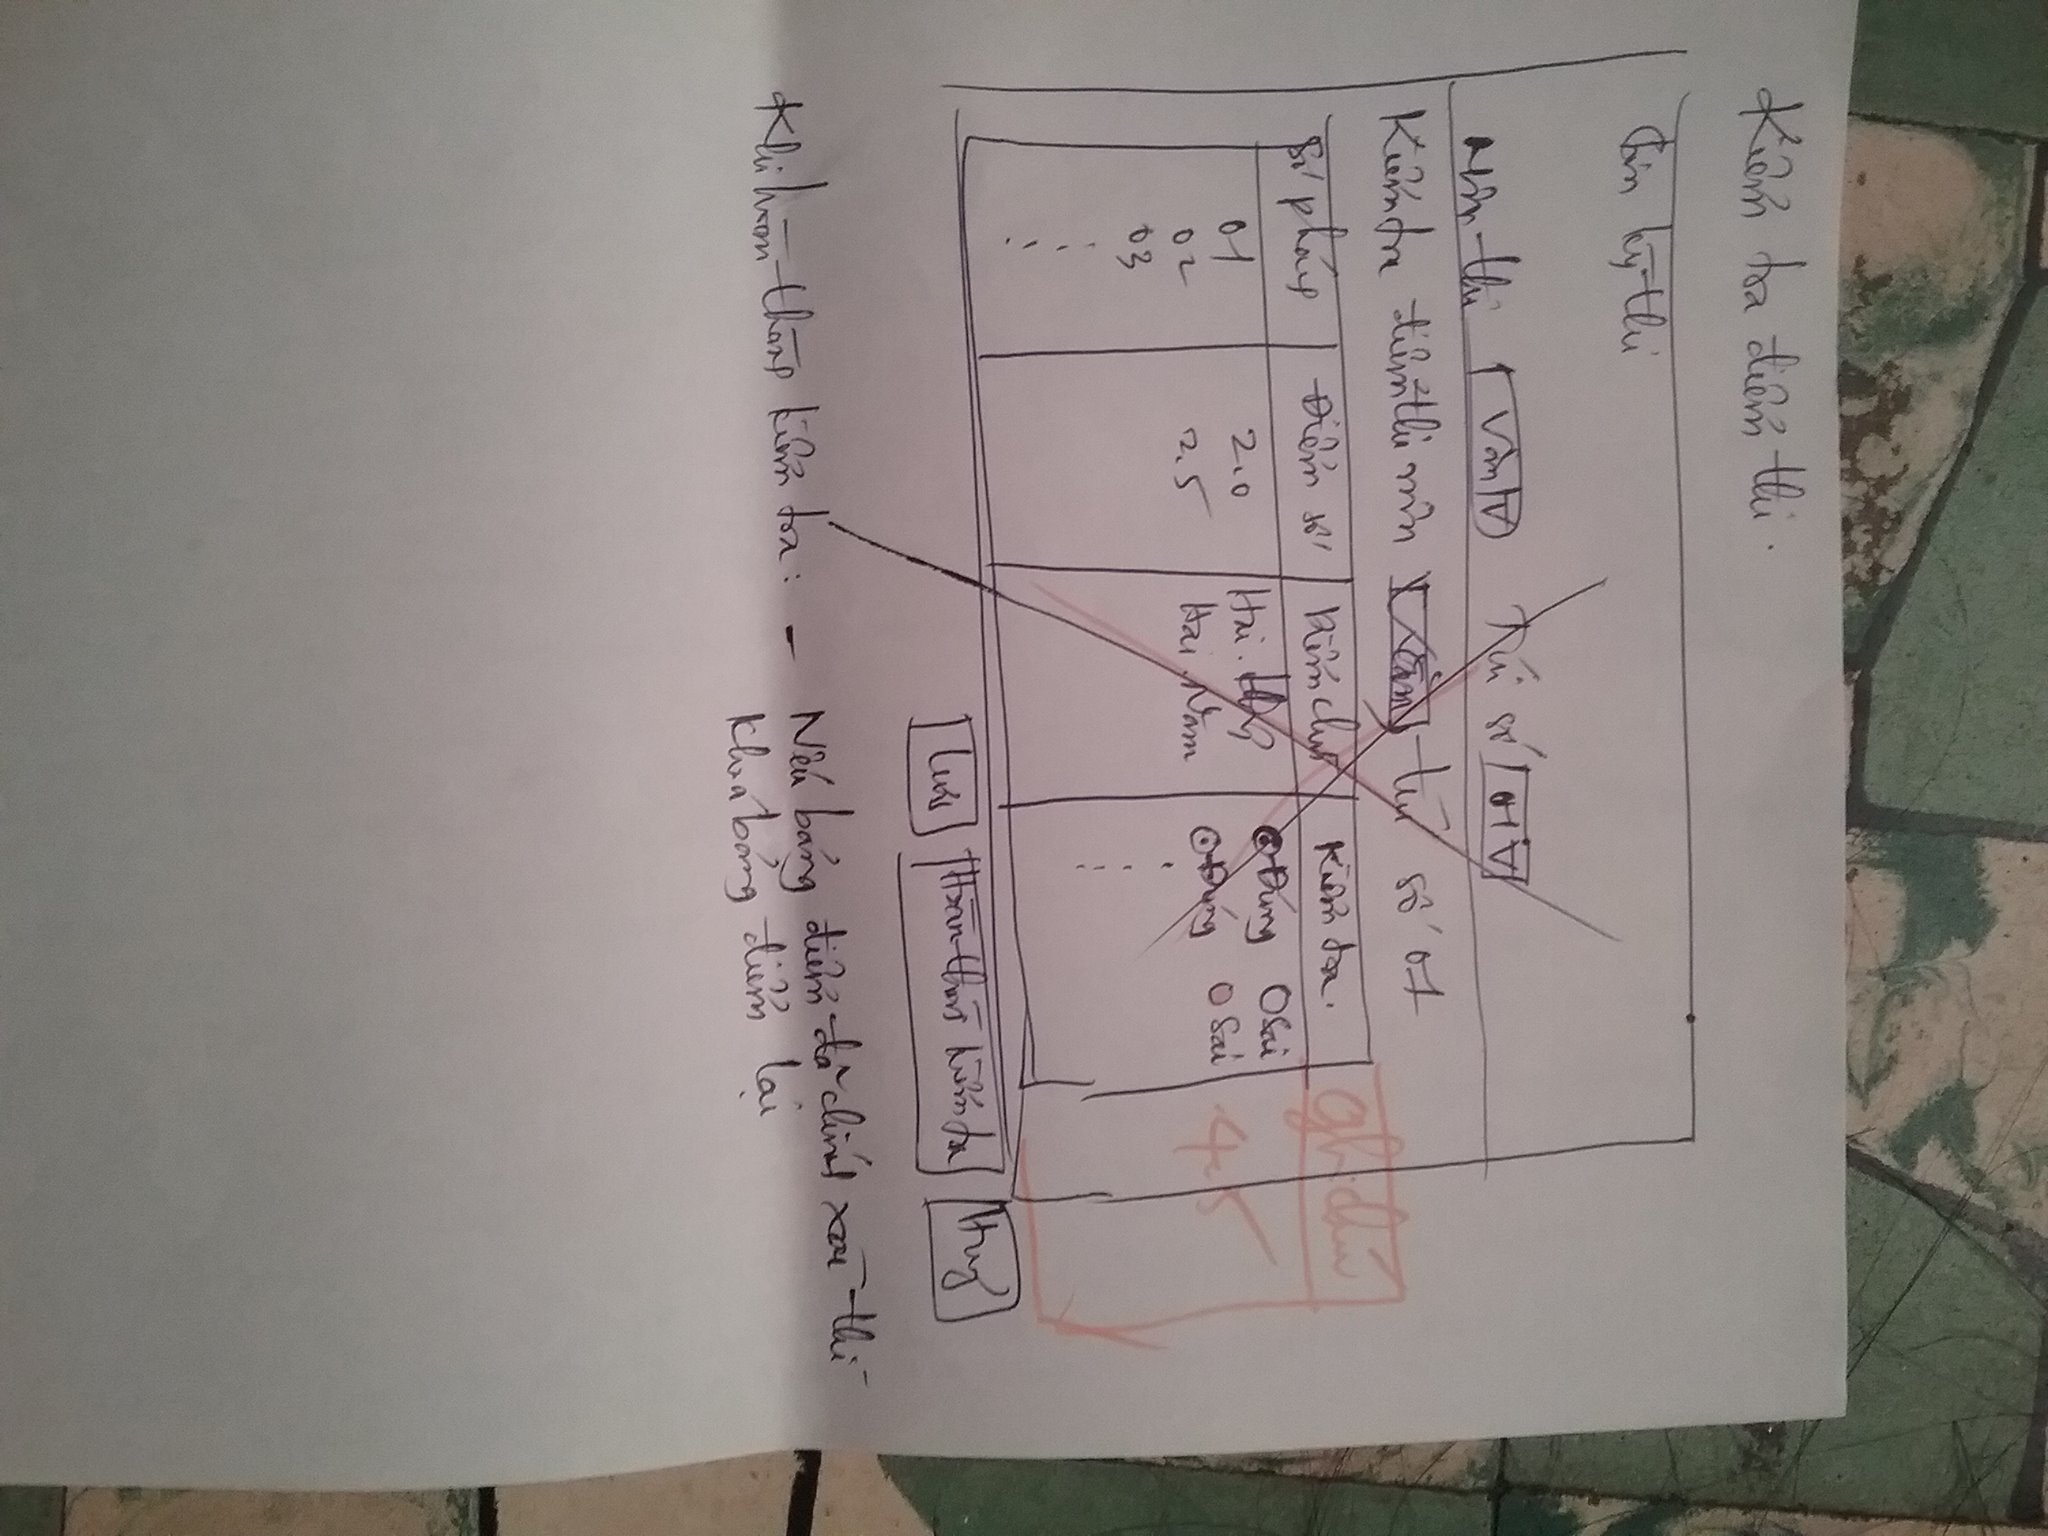 Kiểm tra điểm thi.
Tên kỳ thi
Môn thi Văn Túi số 01
Kiểm tra điểm thi môn Văn túi số 01
Số phách Điểm số Điểm chữ Kiểm tra. Ghi chú
01 2.0 Hai. Đúng Sai
02 2.5 Hai. Năm Đúng Sai 4.5
03
Lưu Hoàn thành kiểm tra Huỷ
Khi hoàn thành kiểm tra: - Nếu bảng điểm đã chính xác thì
khoá bảng điểm lại